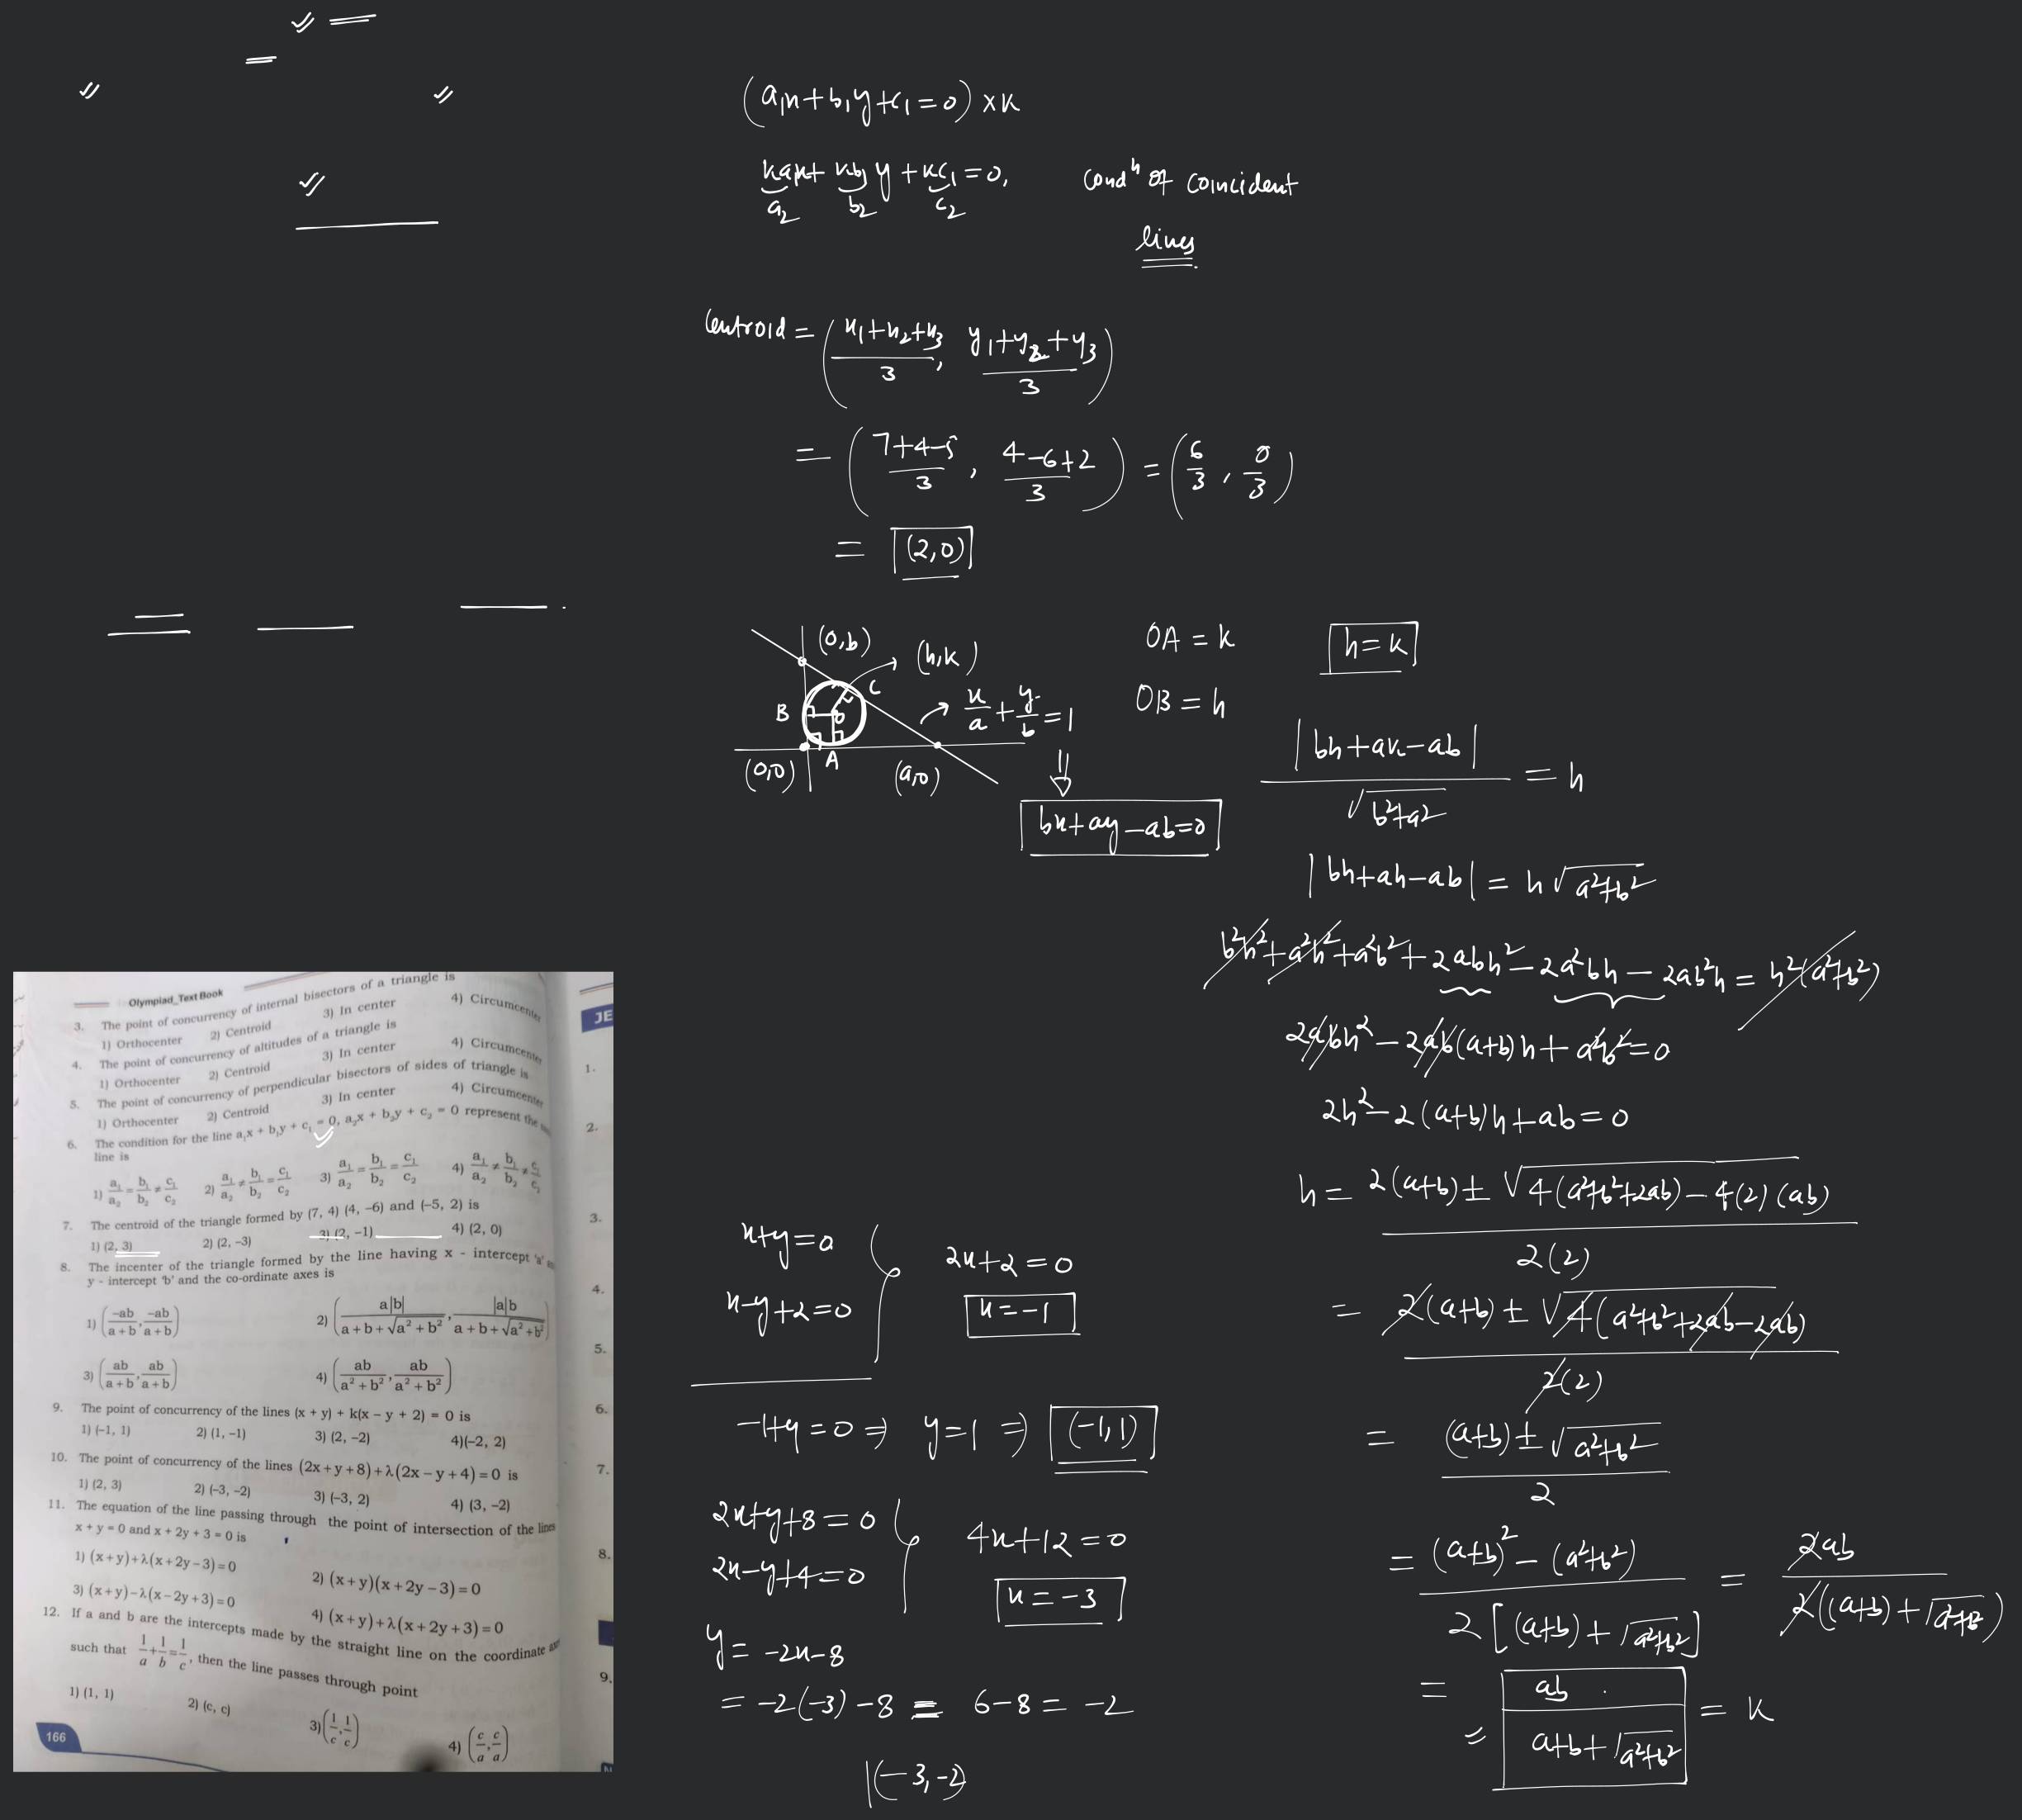 (a₁x+b₁y+c₁=0)×k
ka₁x+kb₁y+kc₁=0,
a₂ b₂ c₂
condⁿ of coincident
lines
Centroid = ((x₁+x₂+x₃)/3, (y₁+y₂+y₃)/3)
= ((7+4-5)/3, (4-6+2)/3) = (6/3, 0/3)
= (2,0)
(0,b)
(h,k)
B
C
O
x/a + y/b = 1
(0,0)
A
(a,0)
bx+ay-ab=0
OA = k
h=k
OB = h
|bh+ak-ab| / √(b²+a²) = h
|bh+ah-ab| = h√(a²+b²)
b²h²+a²h²+a²b²+2abh²-2a²bh-2ab²h = h²(a²+b²)
2abh²-2ab(a+b)h+a²b²=0
2h²-2(a+b)h+ab=0
h = (2(a+b) ± √(4(a²+b²+2ab)-4(2)(ab))) / 2(2)
= (2(a+b) ± √(4(a²+b²+2ab-2ab))) / 2(2)
= ((a+b) ± √(a²+b²)) / 2
= ((a+b)²-(a²+b²)) / 2[(a+b)+√(a²+b²)] = 2ab / 2((a+b)+√(a²+b²))
= ab / (a+b+√(a²+b²)) = k
x+y=0
x-y+2=0
2x+2=0
x=-1
-1+y=0 ⇒ y=1 ⇒ (-1,1)
2x+y+8=0
2x-y+4=0
4x+12=0
x=-3
y = -2x-8
= -2(-3)-8 = 6-8 = -2
(-3,-2)
Olympiad_Text Book
3. The point of concurrency of internal bisectors of a triangle is
1) Orthocenter 2) Centroid 3) In center 4) Circumcenter
4. The point of concurrency of altitudes of a triangle is
1) Orthocenter 2) Centroid 3) In center 4) Circumcenter
5. The point of concurrency of perpendicular bisectors of sides of triangle is
1) Orthocenter 2) Centroid 3) In center 4) Circumcenter
6. The condition for the line a₁x + b₁y + c₁ = 0, a₂x + b₂y + c₂ = 0 represent the
line is
1) a₁/a₂ = b₁/b₂ ≠ c₁/c₂ 2) a₁/a₂ ≠ b₁/b₂ = c₁/c₂ 3) a₁/a₂ = b₁/b₂ = c₁/c₂ 4) a₁/a₂ ≠ b₁/b₂ ≠ c₁/c₂
7. The centroid of the triangle formed by (7, 4) (4, -6) and (-5, 2) is
1) (2, 3) 2) (2, -3) 3) (2, -1) 4) (2, 0)
8. The incenter of the triangle formed by the line having x - intercept 'a'
y - intercept 'b' and the co-ordinate axes is
1) (-ab/(a+b), -ab/(a+b)) 2) (a|b|/(a+b+√(a²+b²)), |a|b/(a+b+√(a²+b²)))
3) (ab/(a+b), ab/(a+b)) 4) (ab/(a²+b²), ab/(a²+b²))
9. The point of concurrency of the lines (x + y) + k(x - y + 2) = 0 is
1) (-1, 1) 2) (1, -1) 3) (2, -2) 4)(-2, 2)
10. The point of concurrency of the lines (2x+y+8)+λ(2x-y+4)=0 is
1) (2, 3) 2) (-3, -2) 3) (-3, 2) 4) (3, -2)
11. The equation of the line passing through the point of intersection of the lines
x + y = 0 and x + 2y + 3 = 0 is
1) (x+y)+λ(x+2y-3)=0
2) (x+y)(x+2y-3)=0
3) (x+y)-λ(x-2y+3)=0
4) (x+y)+λ(x+2y+3)=0
12. If a and b are the intercepts made by the straight line on the coordinate
such that 1/a + 1/b = 1/c, then the line passes through point
1) (1, 1) 2) (c, c) 3) (1/c, 1/c) 4) (c/a, c/a)
166
JE
1.
2.
3.
4.
5.
6.
7.
8.
9.